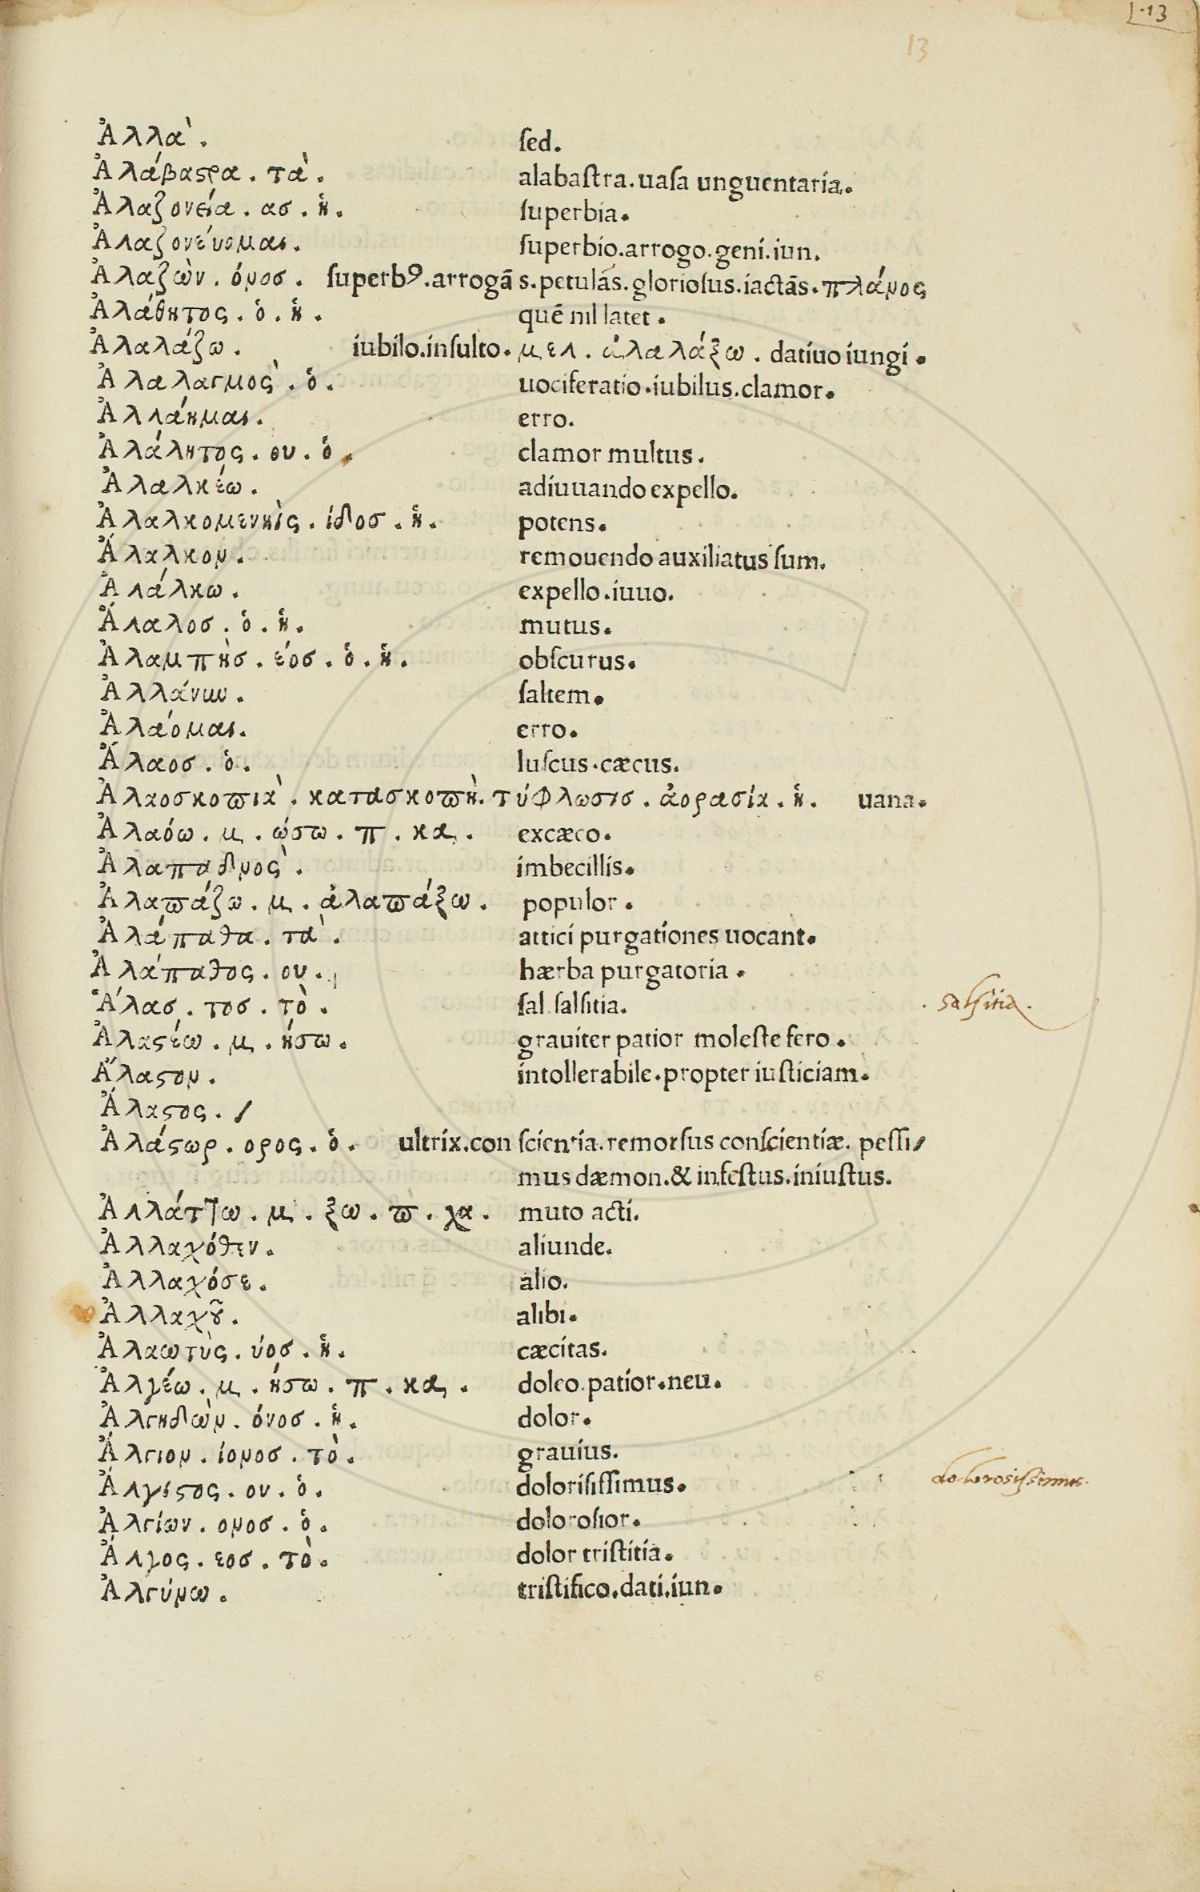 13
13
Ἀλλὰ. sed.
Ἀλάβαστρα. τὰ. alabastra. uasa unguentaria.
Ἀλαζονεία. ασ. ἡ. superbia.
Ἀλαζονεύομαι. superbio. arrogo. geni. iun.
Ἀλαζὼν. όνοσ. superbꝰ. arrogãs. petulãs. gloriosus. iactãs. πλάνος
Ἀλάθητος. ὁ. ἡ. quē nil latet.
Ἀλαλάζω. iubilo. insulto. μελ. ἀλαλάξω. datiuo iungi.
Ἀλαλαγμος̀. ὁ. uociferatio. iubilus. clamor.
Ἀλλάημαι. erro.
Ἀλάλητος. ου. ὁ. clamor multus.
Ἀλαλκέω. adiuuando expello.
Ἀλαλκομενηὶς. ίδοσ. ἡ. potens.
Ἄλαλκον. remouendo auxiliatus sum.
Ἀλάλκω. expello. iuuo.
Ἄλαλοσ. ὁ. ἡ. mutus.
Ἀλαμπὴσ. έοσ. ὁ. ἡ. obscurus.
Ἀλλάνυν. saltem.
Ἀλαόμαι. erro.
Ἄλαοσ. ὁ. luscus. cæcus.
Ἀλαοσκοπιὰ. κατασκοπὴ. τύφλωσισ. ἀορασία. ἡ. uana.
Ἀλαόω. μ. ώσω. π. κα. excæco.
Ἀλαπαδνος̀. imbecillis.
Ἀλαπάζω. μ. ἀλαπάξω. populor.
Ἀλάπαθα. τὰ. attici purgationes uocant.
Ἀλάπαθος. ου. hærba purgatoria.
Ἅλασ. τοσ. τὸ. sal salsitia. salsitia.
Ἀλαστέω. μ. ήσω. grauiter patior moleste fero.
Ἄλαστον. intollerabile. propter iusticiam.
Ἄλαστος. /
Ἀλάστωρ. ορος. ὁ. ultrix. conscientia. remorsus conscientiæ. pessi/
mus dæmon. & infestus. iniustus.
Ἀλλάττω. μ. ξω. π. χα. muto acti.
Ἀλλαχόθεν. aliunde.
Ἀλλαχόσε. alio.
Ἀλλαχοῦ. alibi.
Ἀλαωτὺς. ύοσ. ἡ. cæcitas.
Ἀλγέω. μ. ήσω. π. κα. doleo. patior. neu.
Ἀλγηδὼν. όνοσ. ἡ. dolor.
Ἄλγιον. ίονοσ. τὸ. grauius.
Ἄλγιστος. ου. ὁ. dolorisissimus. dolorosissimus.
Ἀλγίων. ονοσ. ὁ. dolorosior.
Ἄλγος. εοσ. τὸ. dolor tristitia.
Ἀλγύνω. tristifico. dati. iun.